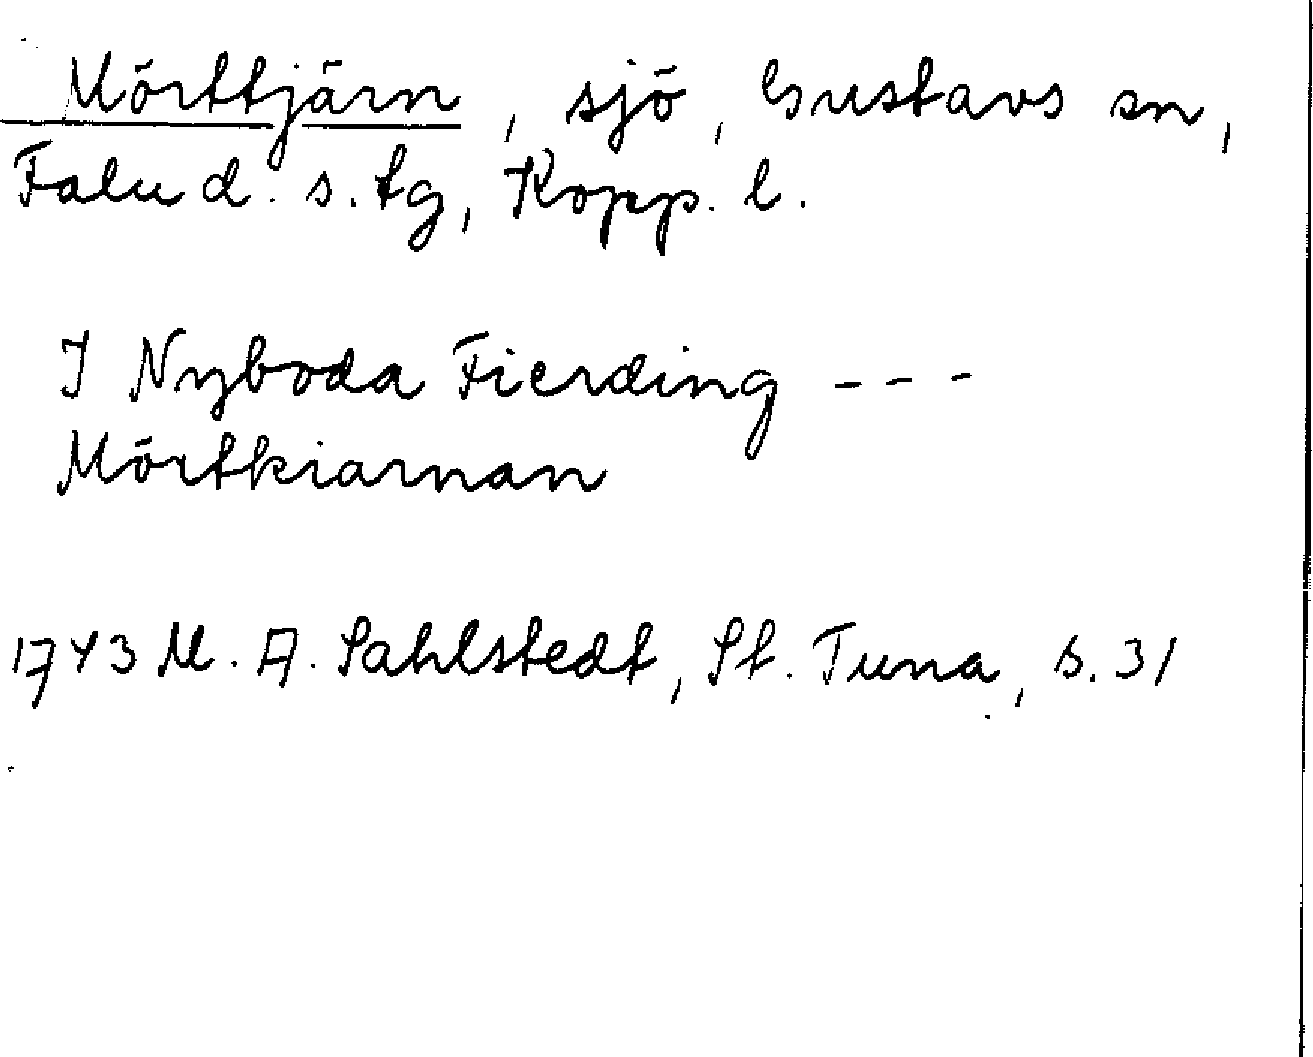 Mörttjärn, sjö, Gustavs sn,
Falu d. s. tg, Kopp. l.
I Nyboda Fierding ---
Mörtkiarnan
1743 M. A. Sahlstedt, St. Tuna, s. 31